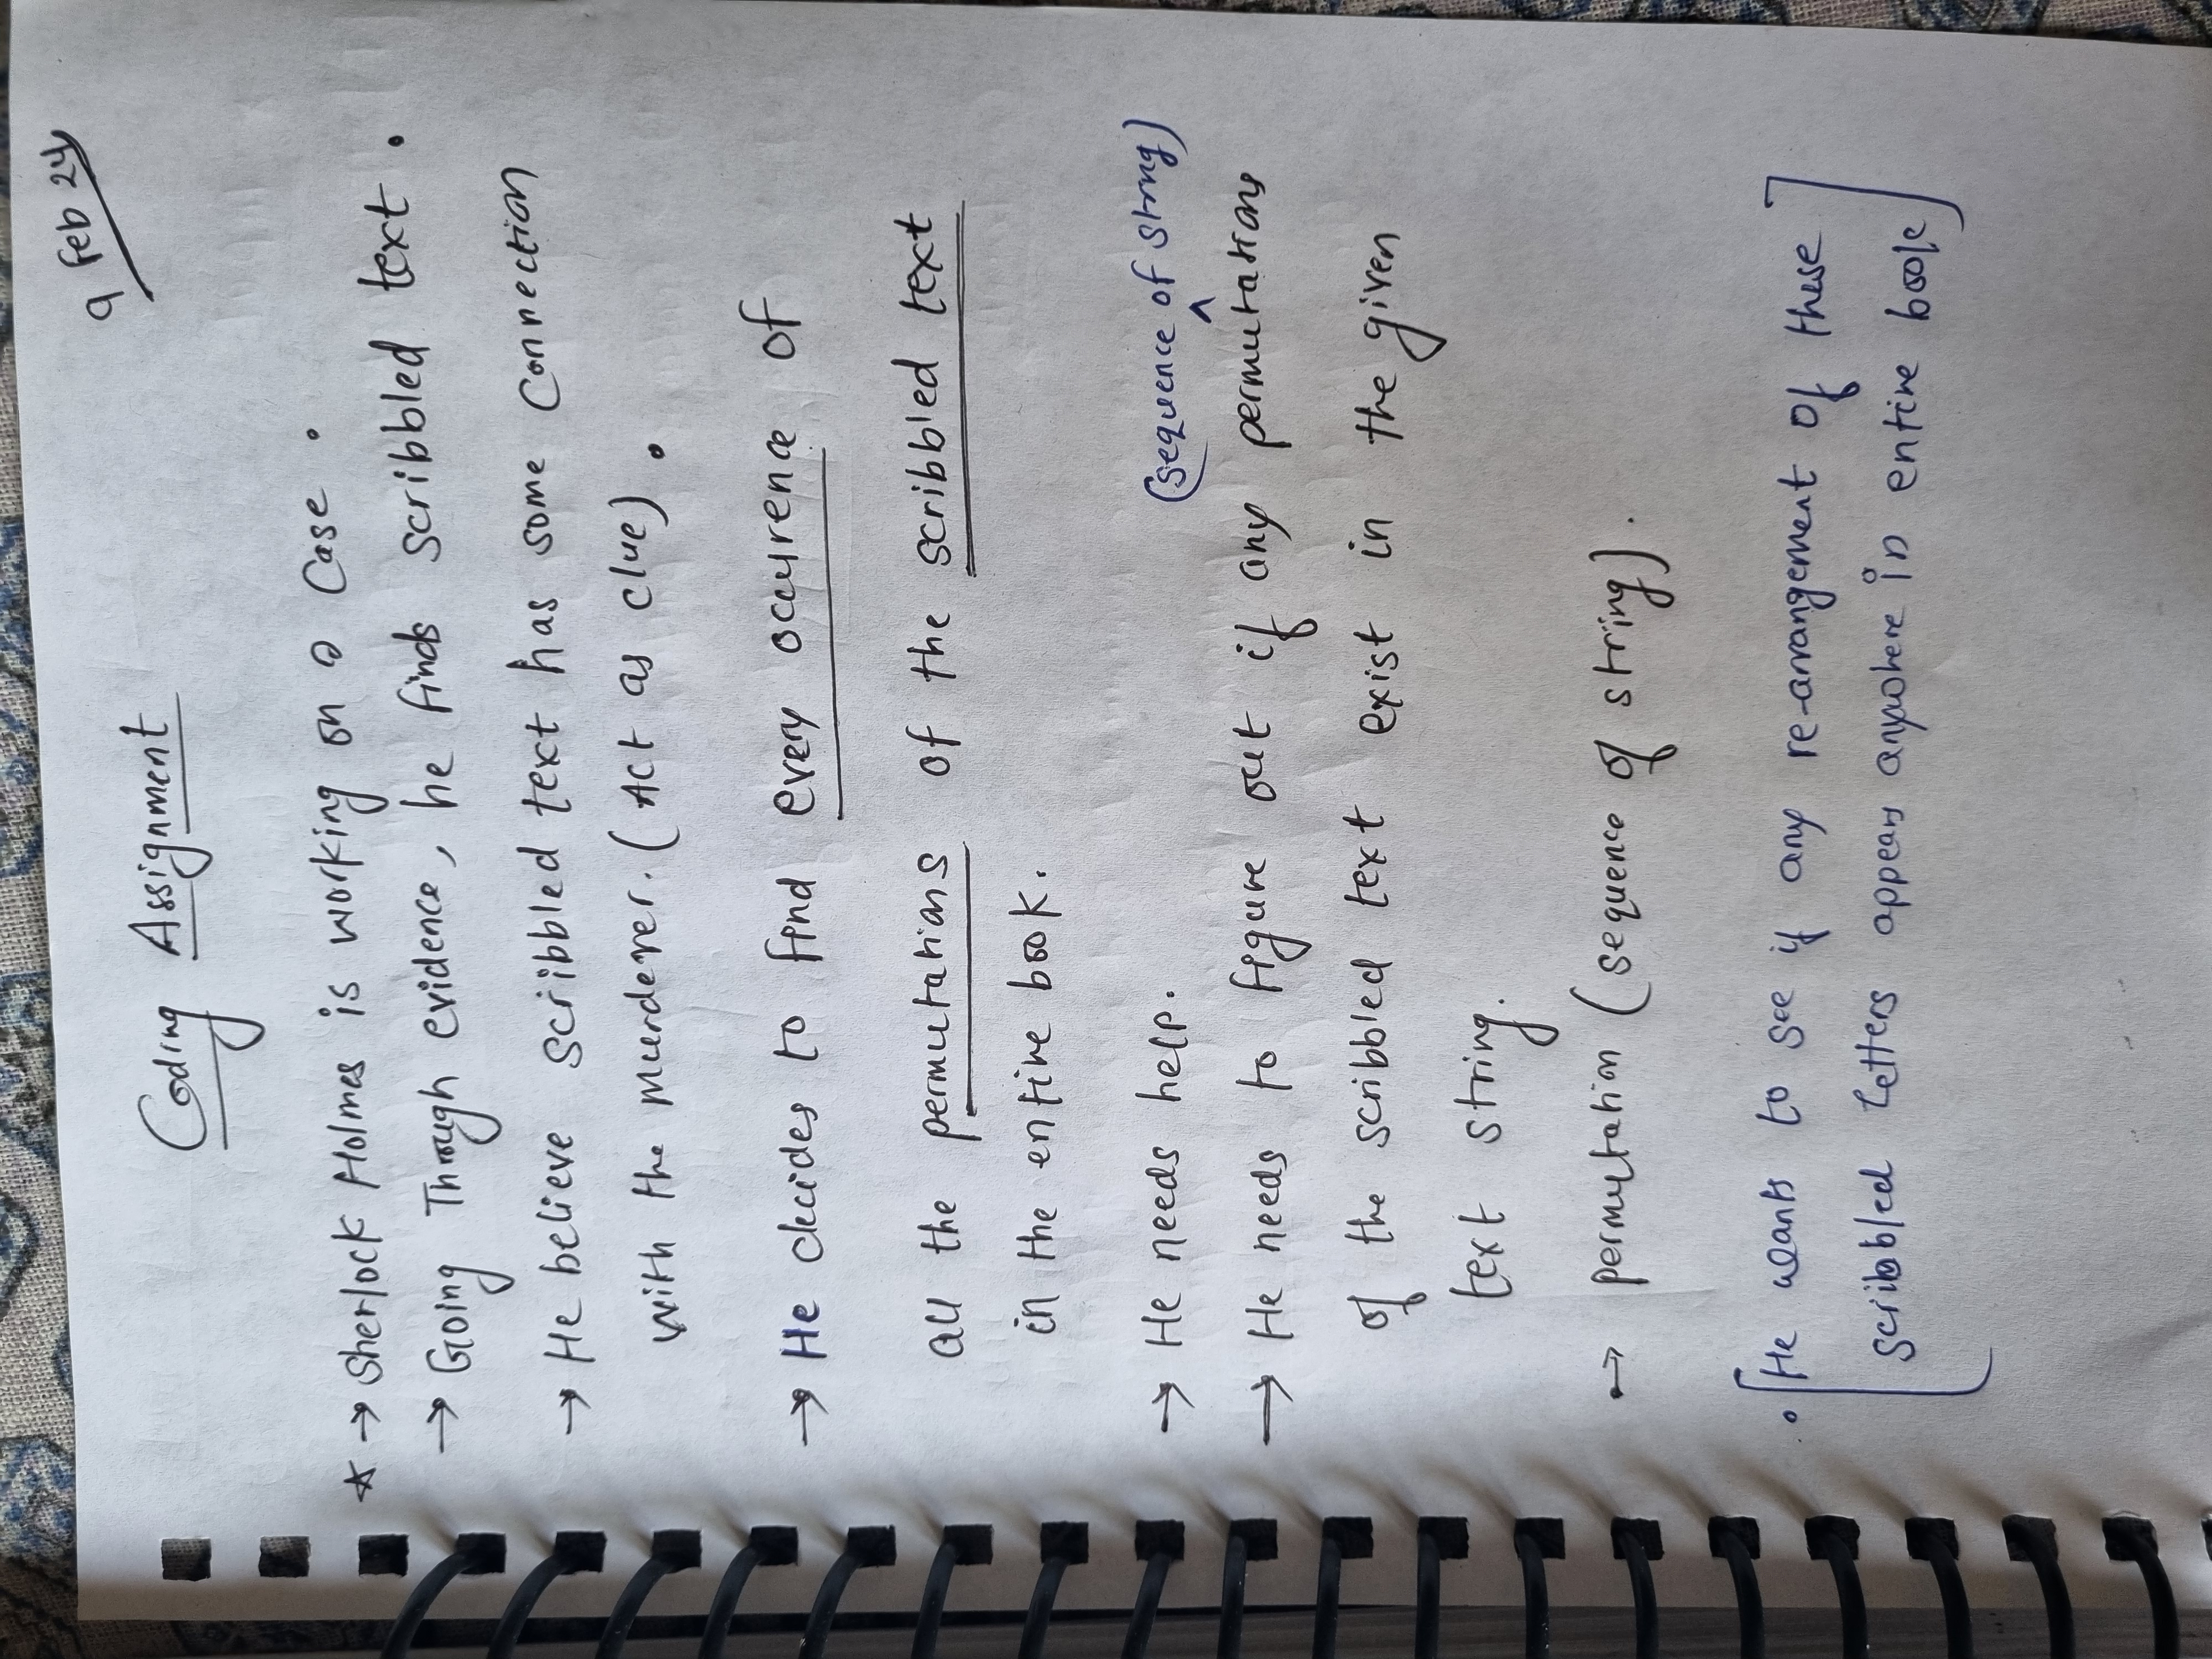 9 Feb 24
Coding Assignment
★ → Sherlock Holmes is working on a Case.
→ Going Through evidence, he finds scribbled text.
→ He believe scribbled text has some connection
with the murderer. (Act as clue).
→ He decides to find every occurence of
all the permutations of the scribbled text
in the entire book.
→ He needs help.
(sequence of string)
→ He needs to figure out if any ^ permutations
of the scribbled text exist in the given
text string.
→ permutation (sequence of string).
• [He wants to see if any re-arrangement of these
scribbled letters appears anywhere in entire book]